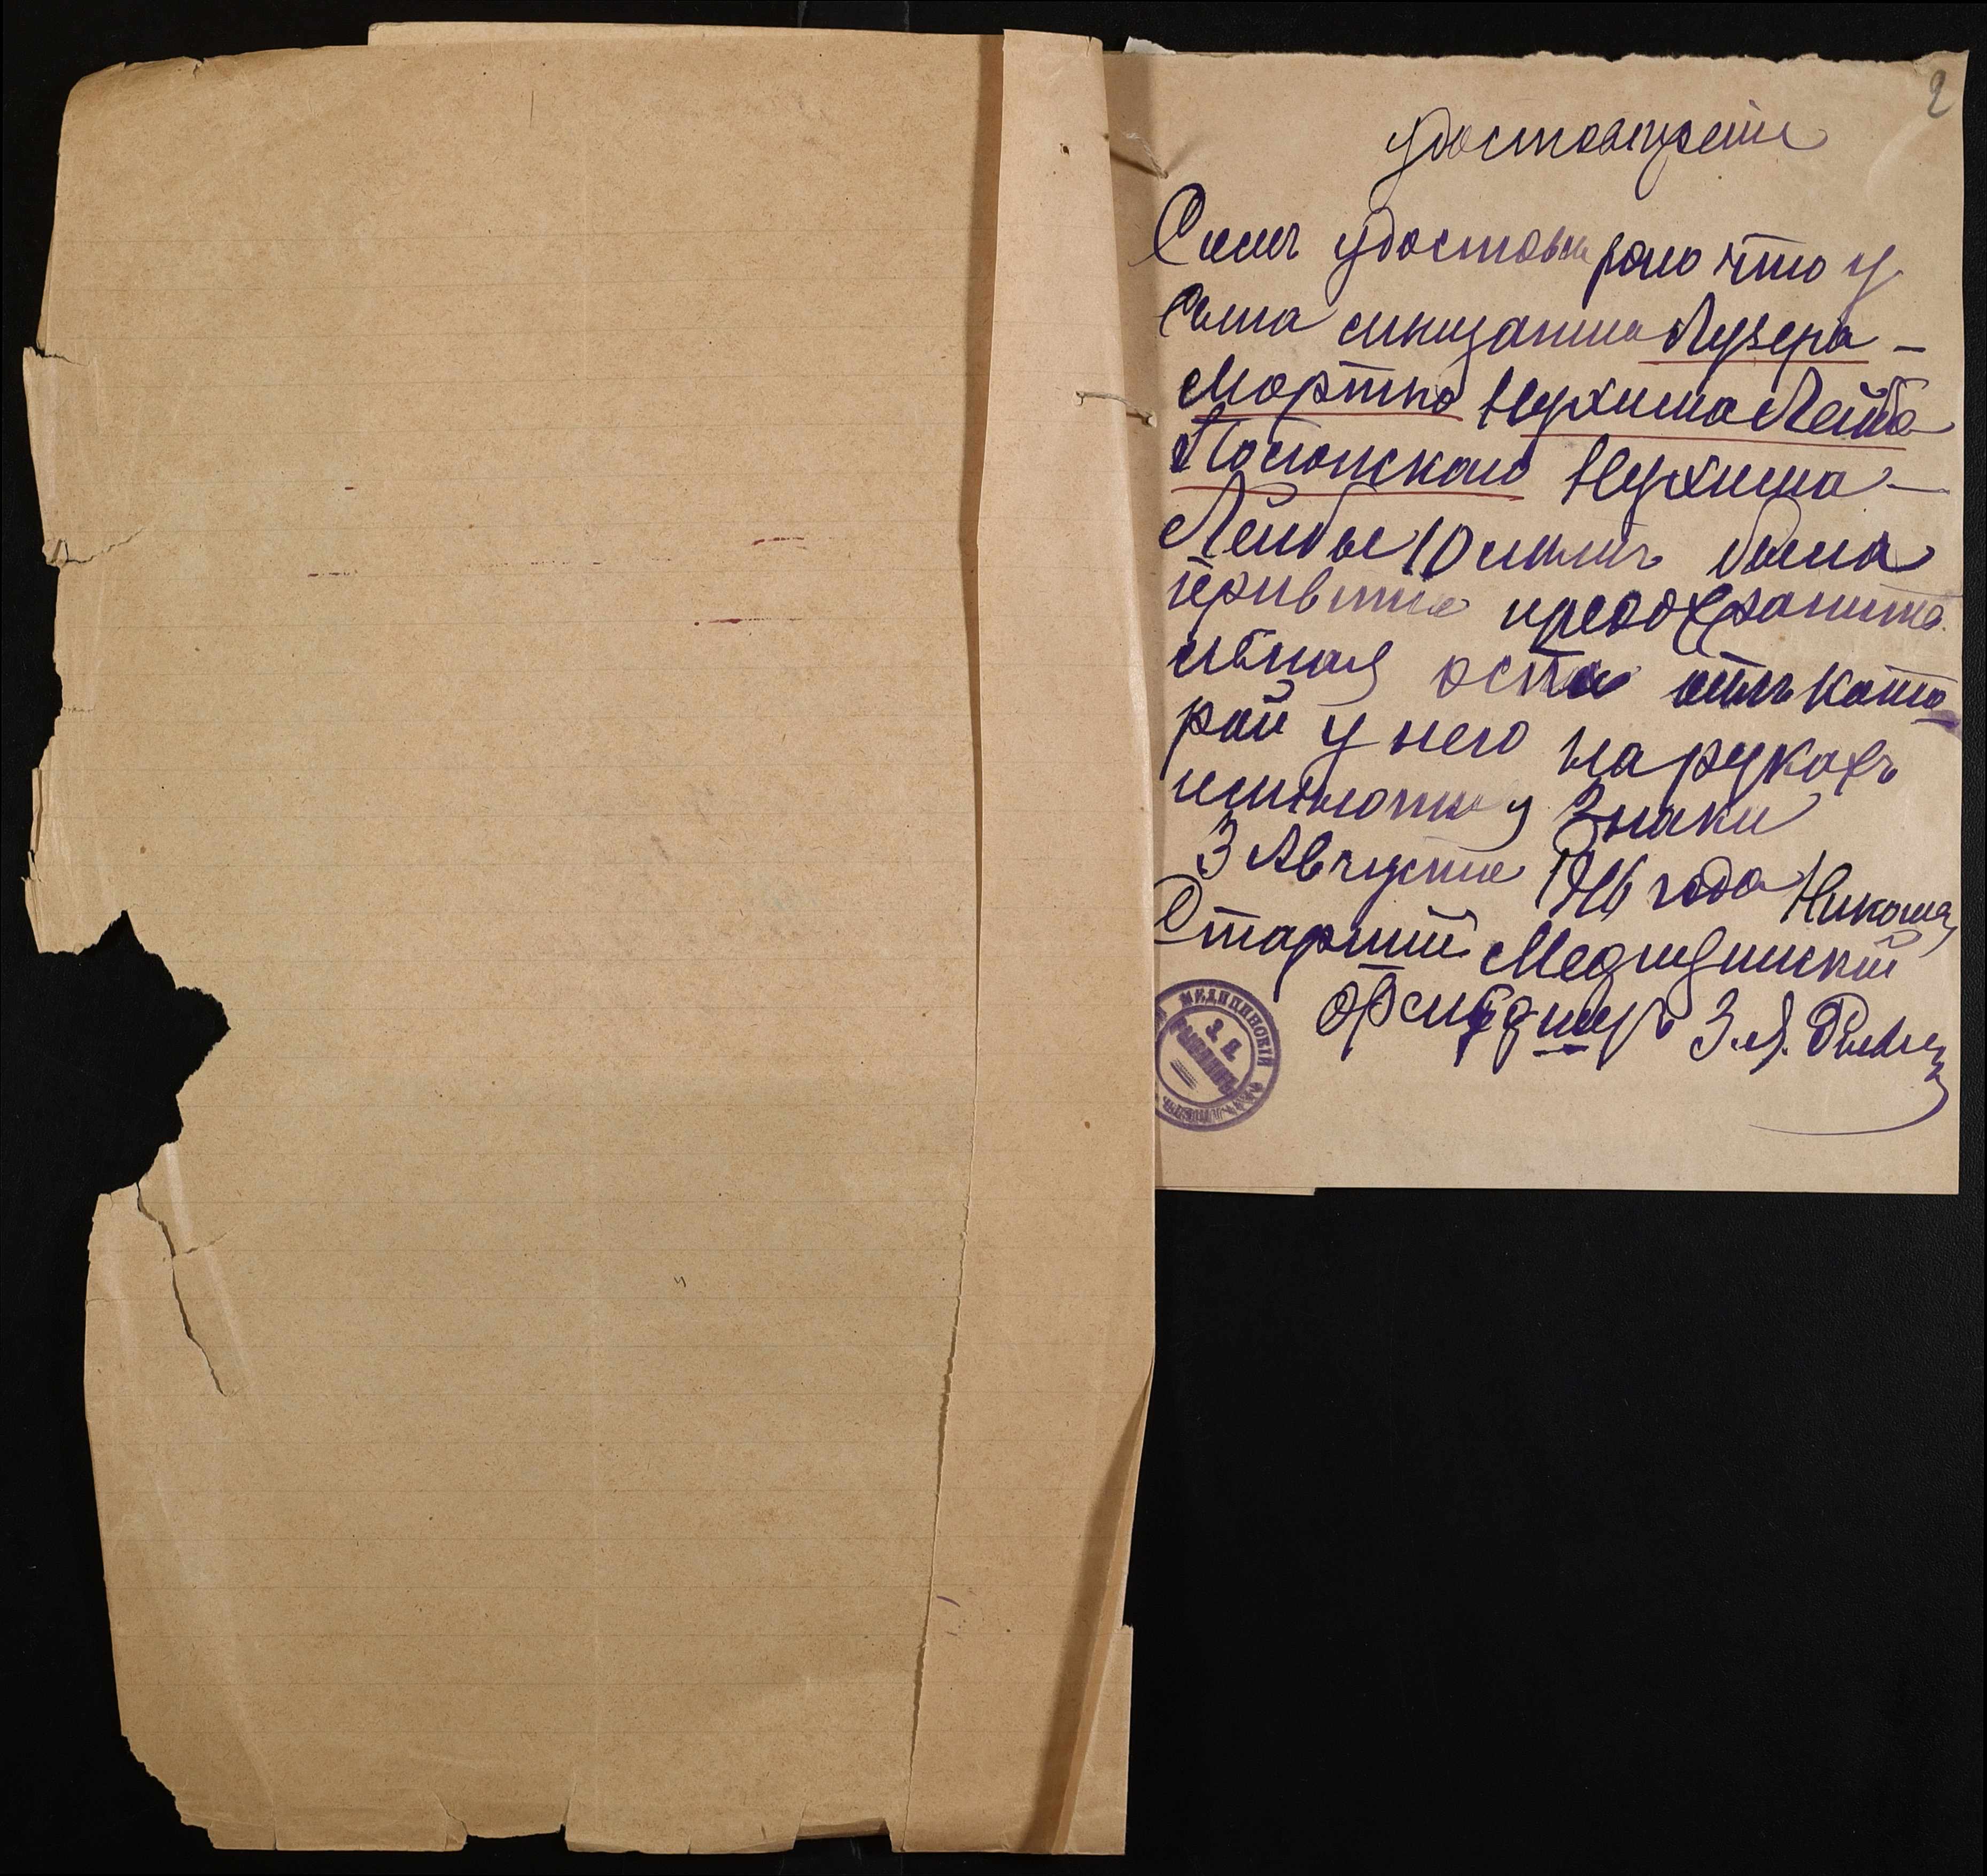 2
удостовѣрение
Симъ удостовѣряю что у
Сына мищанина Лузера-
Мортко Нухима Лейба
Полонскаго Нухима-
Лейбы 10 лѣтъ была
привита предохраните
льная оспа отъ кото
рой у него на рукахъ
имѣются знаки
3 Августа 1916 года
Старший Медицинский
фельдшеръ З. Я.
МЕДИЦИНСКІЙ
З. Я.